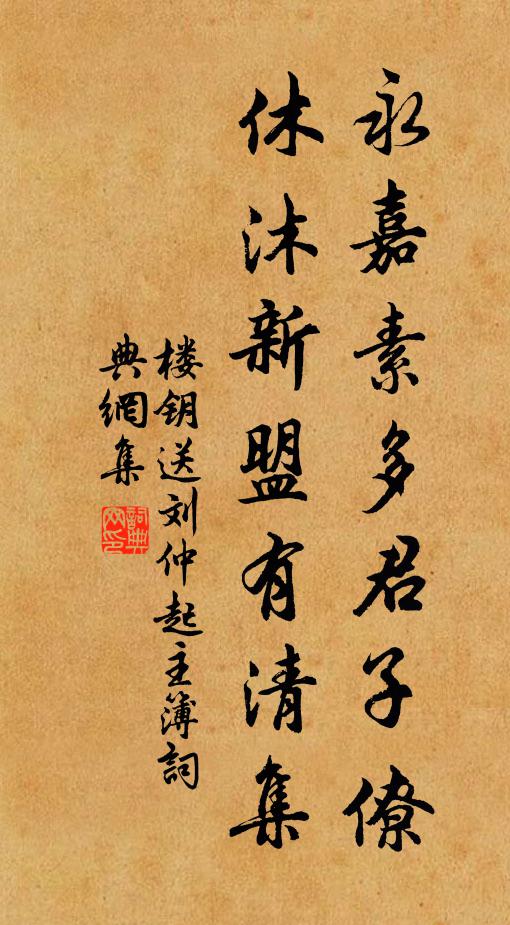 永嘉素多君子僚
休沐新盟有清集
楼钥送刘仲起主簿詞
典網集
詞典网印